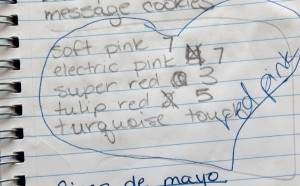 message cookies
soft pink 7
electric pink 7
super red 3
tulip red 5
turquoise touched pink
cinco de mayo